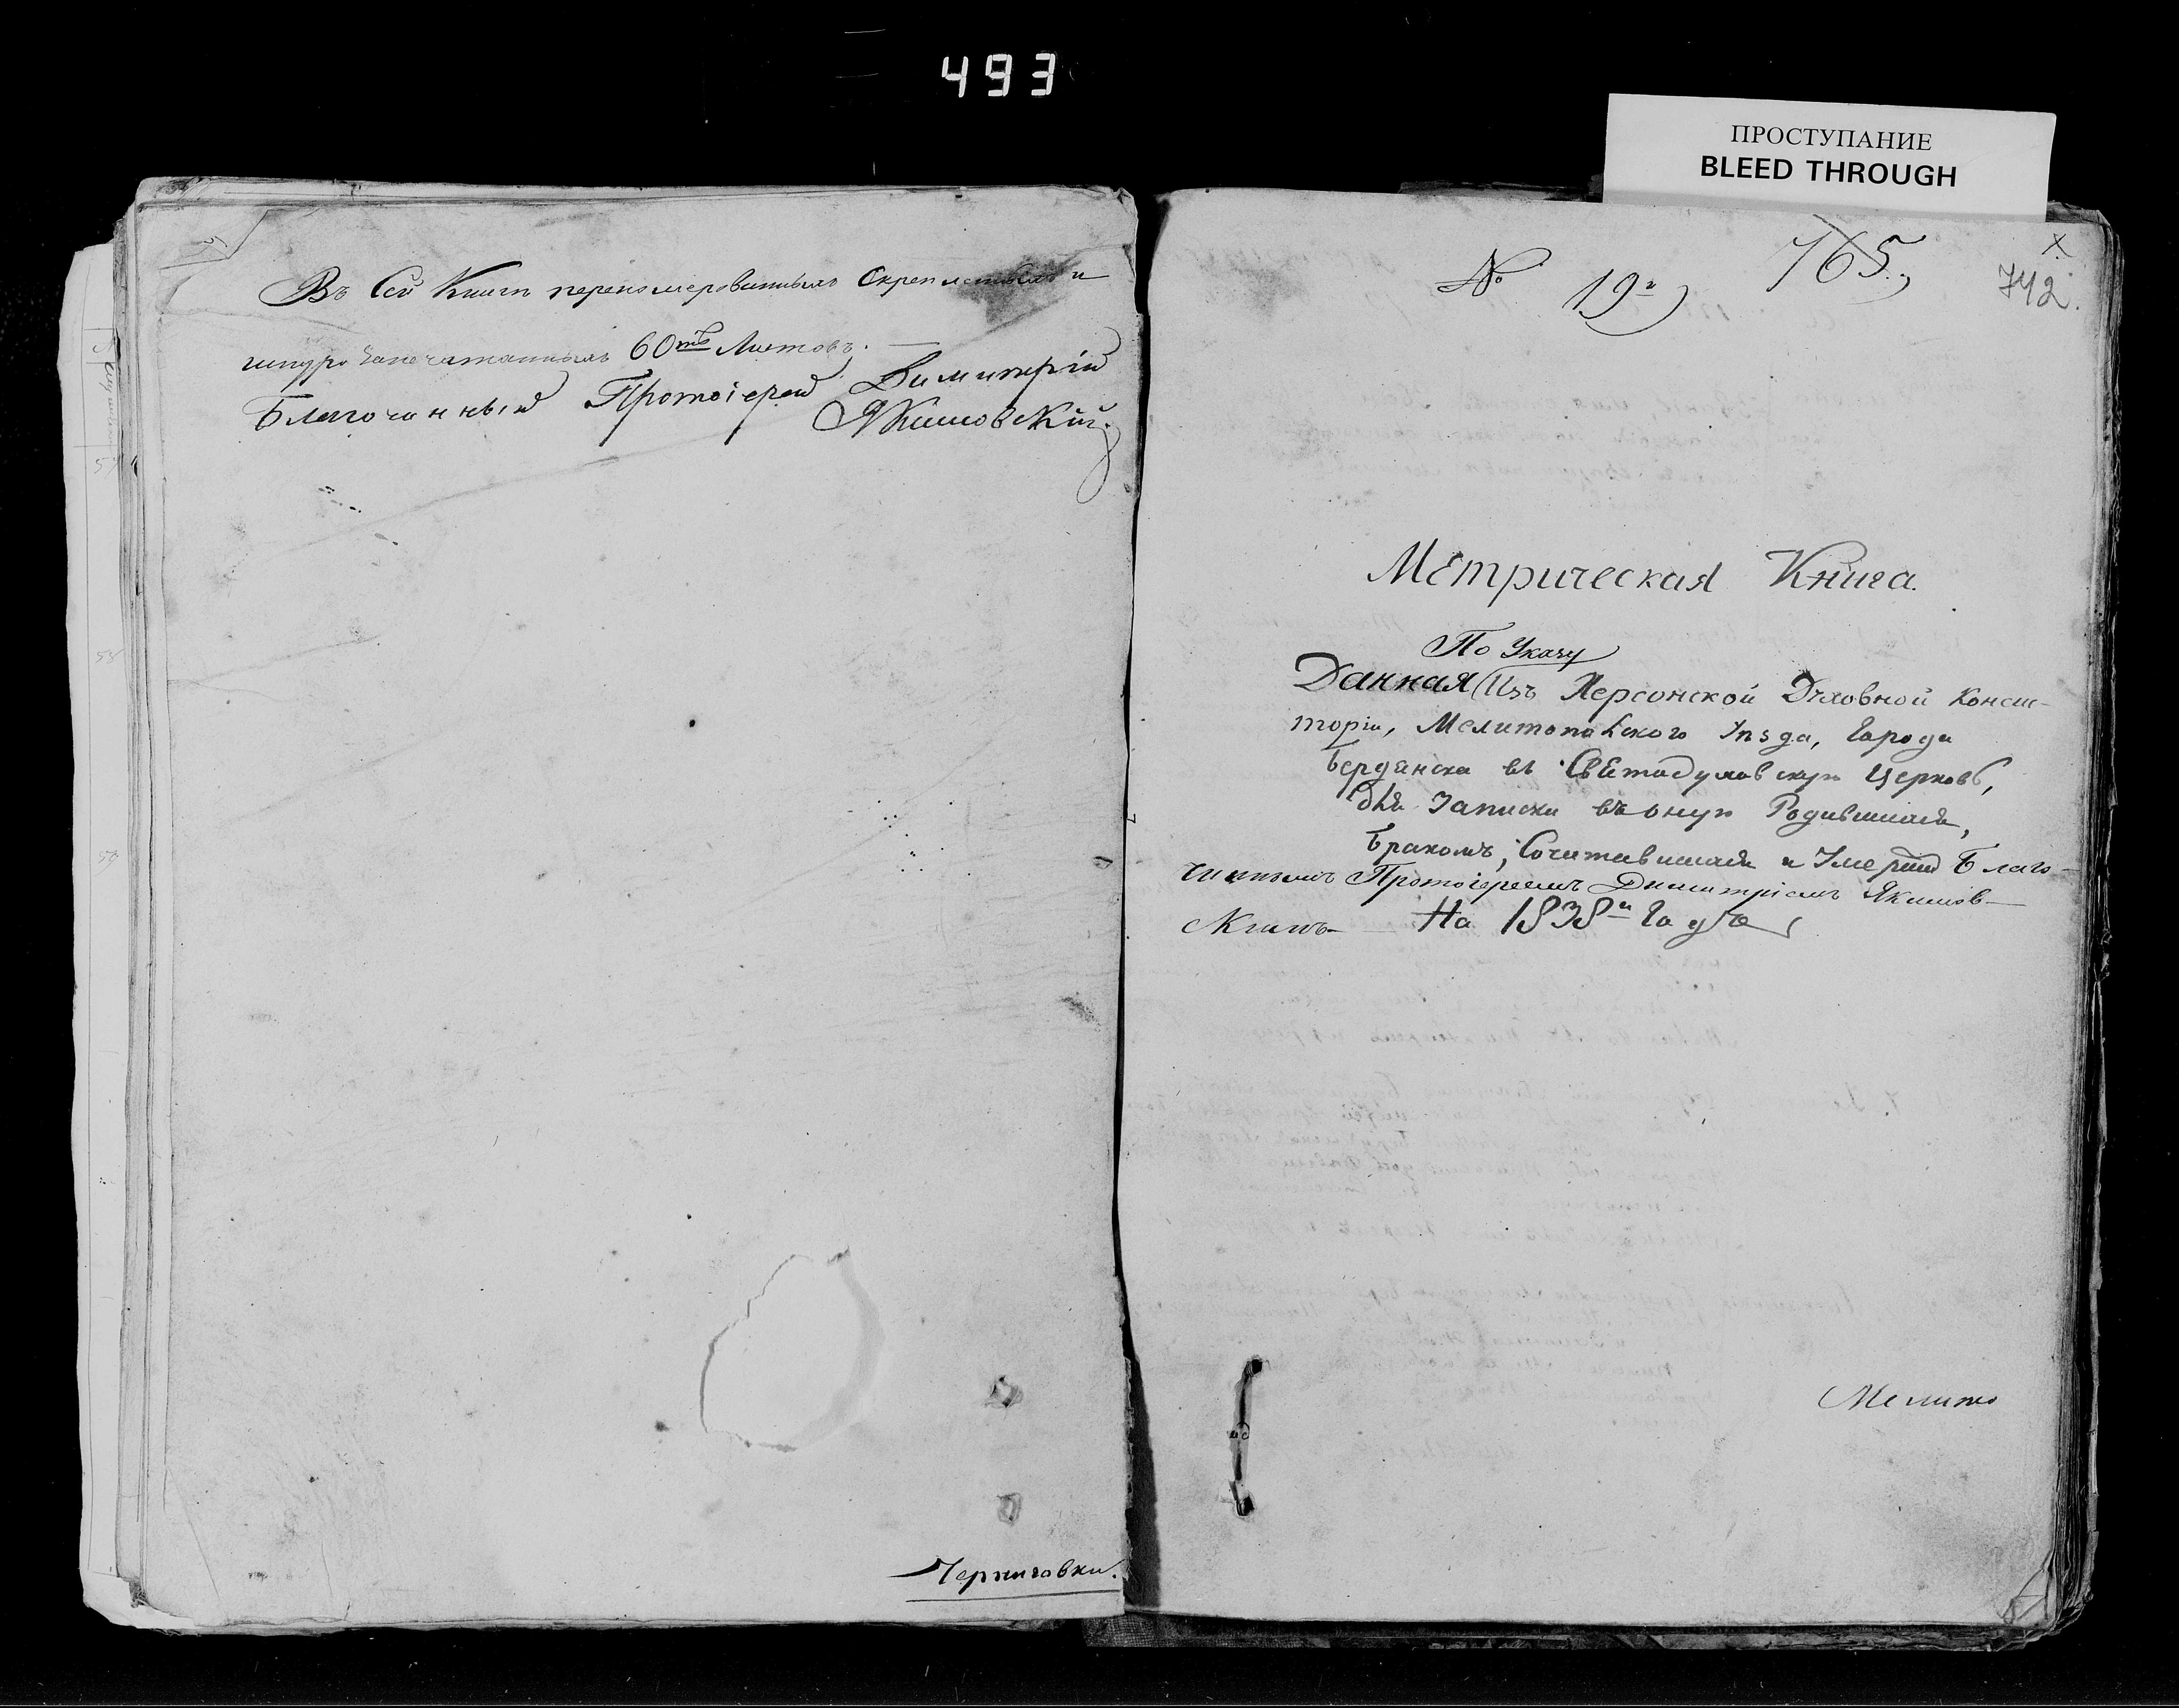 493
ПРОСТУПАНИЕ
BLEED THROUGH
Въ Сей Книгѣ перенумерованныхъ Скрепленныхъ и
шнурозапечатанныхъ 60ть Листовъ.
Благочинный Протоіерей Димитрій
Якимовскій.
Черниговки.
№ 19й
765.
742.
Метрическая Книга.
По Указу
Данная Изъ Херсонской Духовной Консис-
торіи, Мелитопольскаго Уѣзда, Города
Бердянска въ церковь,
для Записки въ оную Родившихся,
Бракомъ, Сочитавшихся и Умершихъ Благо-
чиннымъ Протоіереемъ Димитріемъ Якимов-
скимъ На 1838й Годъ
Мелито
57
58
59